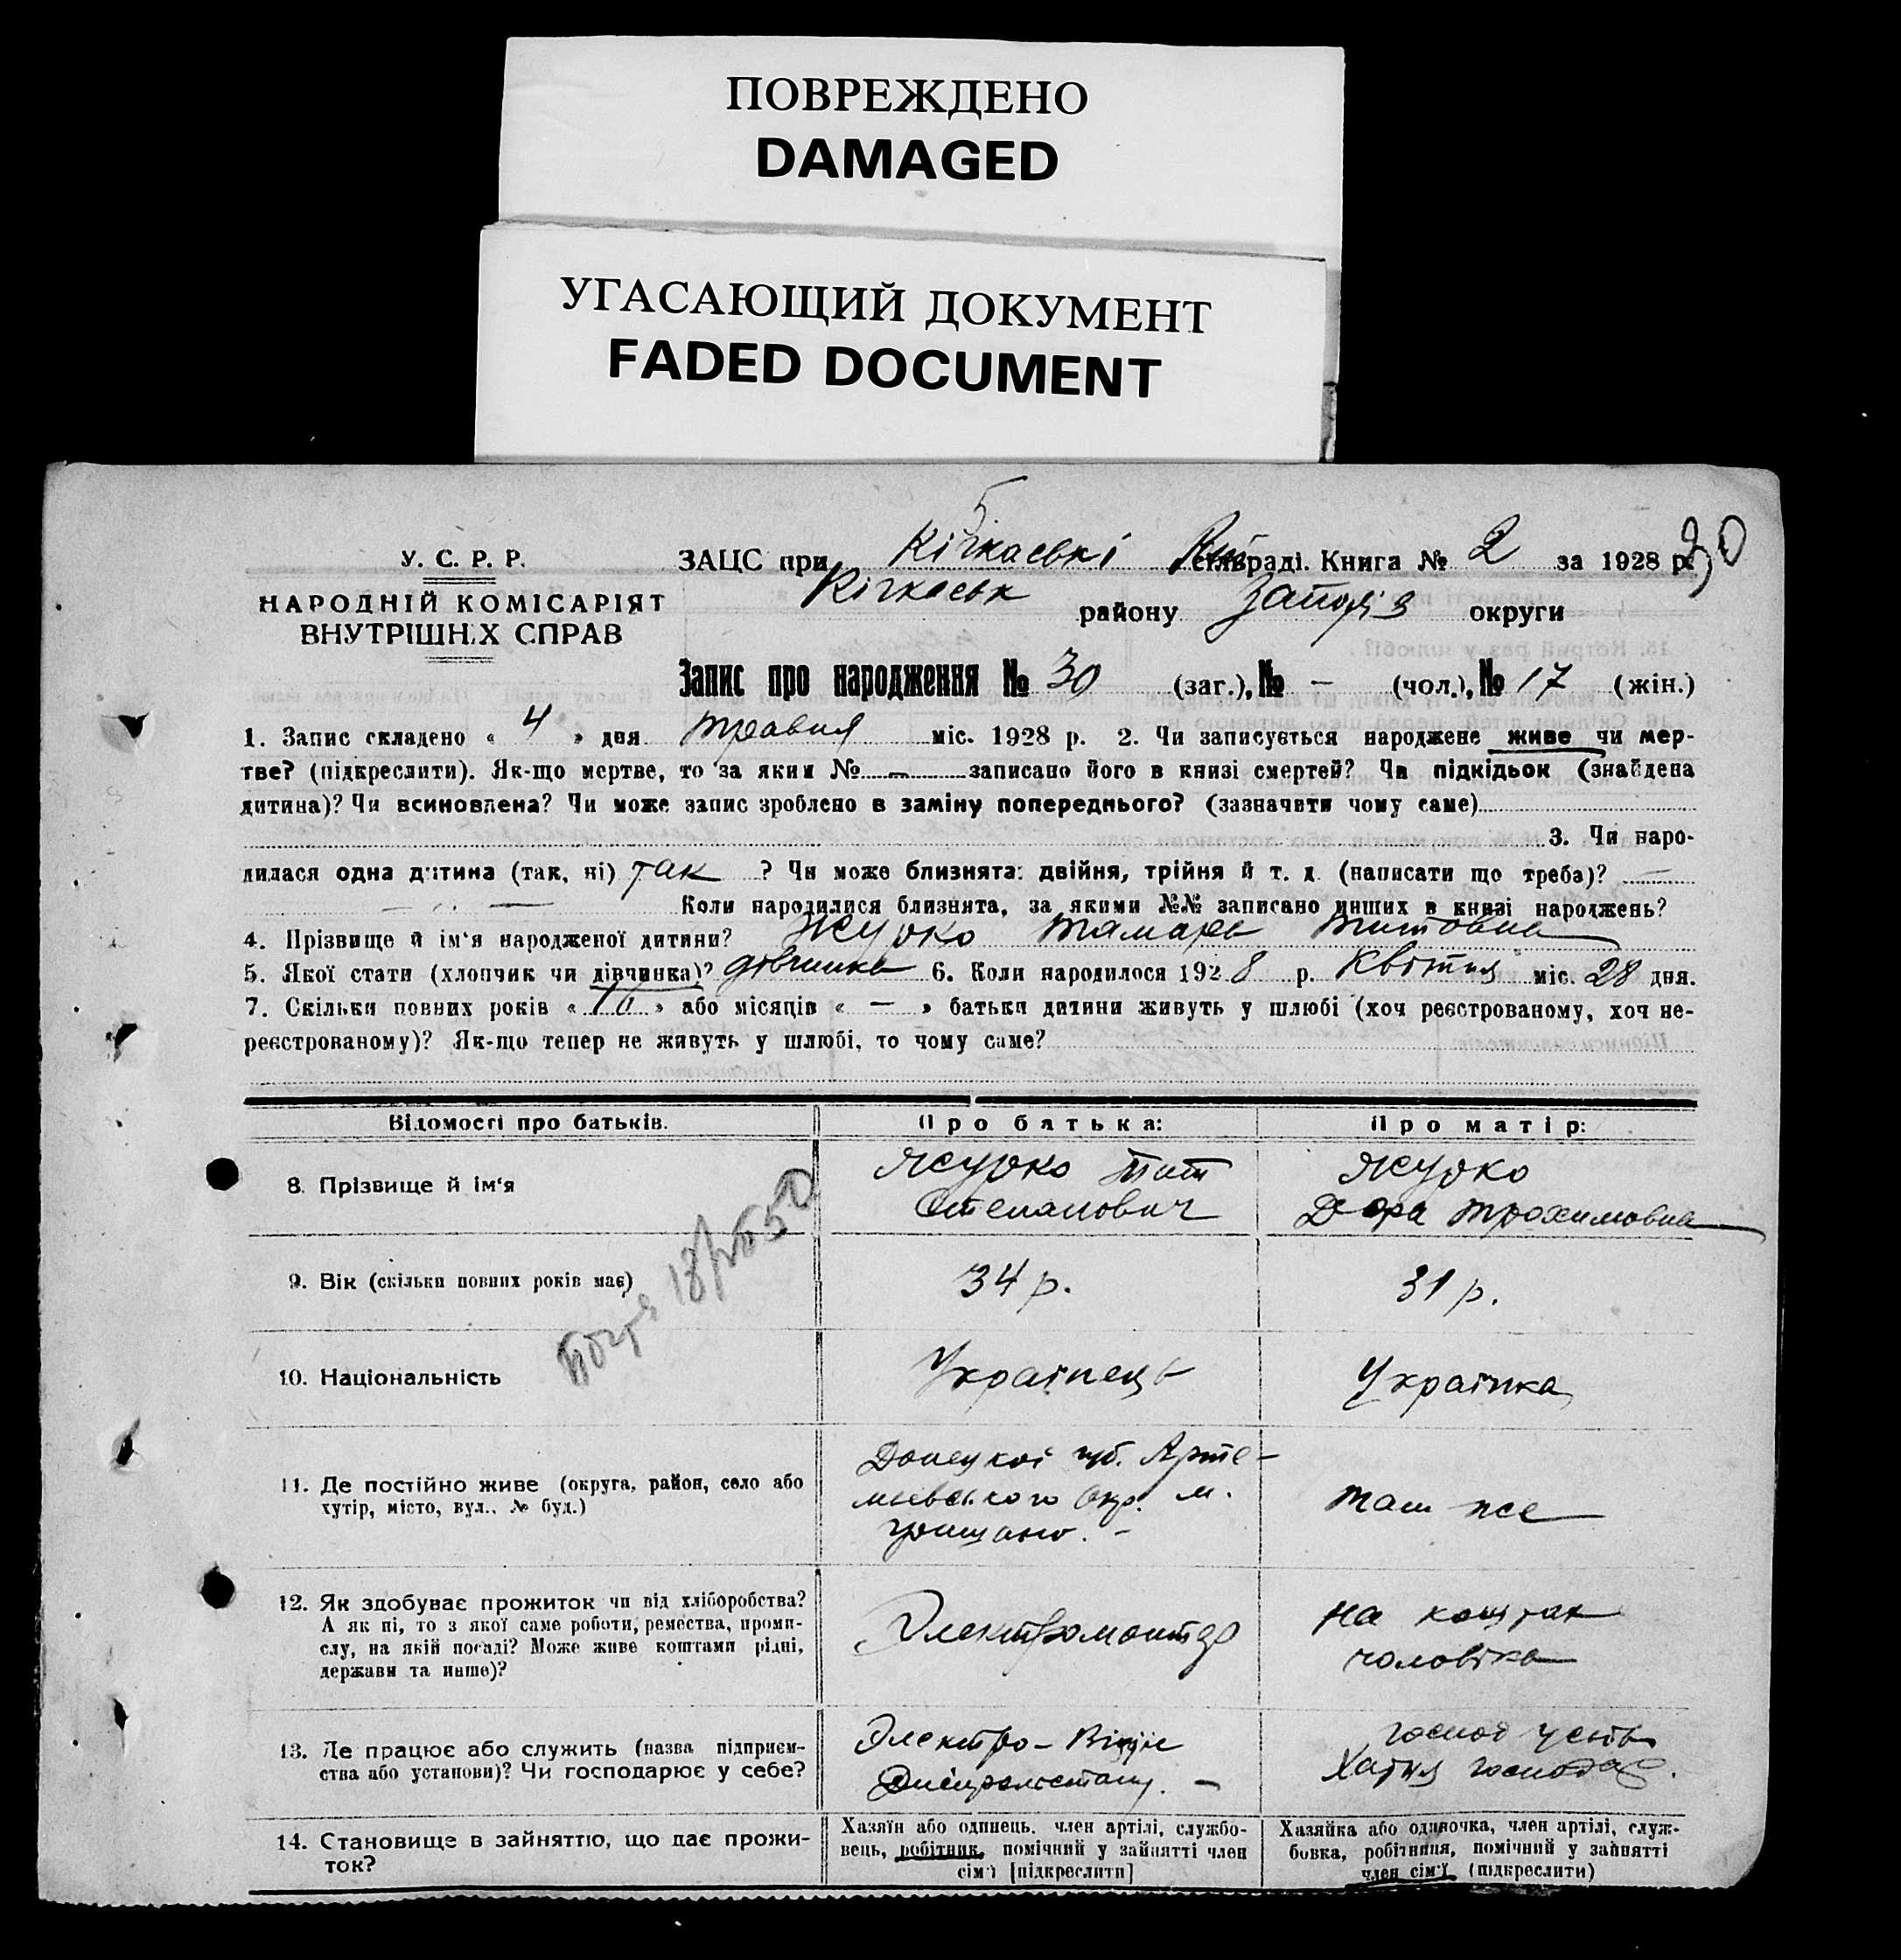 ПОВРЕЖДЕНО
DAMAGED
УГАСАЮЩИЙ ДОКУМЕНТ
FADED DOCUMENT
У. С. Р. Р.
НАРОДНІЙ КОМІСАРІЯТ
ВНУТРІШНІХ СПРАВ
ЗАЦС при Кічкаські раді. Книга № 2 за 1928 р. 30
Кічкаськ району Запоріз округи
Запис про народження № 30 (заг.), № – (чол.), № 17 (жін.)
1. Запис складено « 4 » дня травня міс. 1928 р. 2. Чи записується народжене живе чи мер-
тве? (підкреслити). Як-що мертве, то за яким № – записано його в книзі смертей? Чи підкідьок (знайдена
дитина)? Чи всиновлена? Чи може запис зроблено в заміну попереднього? (зазначити чому саме)
3. Чи наро-
дилася одна дитина (так, ні) так ? Чи може близнята: двійня, трійня й т. д. (написати що треба)? –
Коли народилися близнята, за якими №№ записано инших в книзі народжень?
4. Прізвище й ім'я народженої дитини? Журко Тамара Титовна
5. Якої стати (хлопчик чи дівчинка)? дівчинка 6. Коли народилося 1928 р. Квітня міс. 28 дня.
7. Скільки повних років « 10 » або місяців « – » батьки дитини живуть у шлюбі (хоч реєстрованому, хоч не-
реєстрованому)? Як-що тепер не живуть у шлюбі, то чому саме?
Відомості про батьків. Про батька: Про матір:
8. Прізвище й ім'я
Журко Тит
Степанович
Журко
Дора Трохимовна
9. Вік (скільки повних років має)
34 р.
31 р.
10. Національність
Українець
Українка
11. Де постійно живе (округа, район, село або
хутір, місто, вул., № буд.)
Донецкої губ. Арте-
мьевського Окр. м.
Гришино. –
там же
12. Як здобуває прожиток чи від хліборобства?
А як ні, то з якої саме роботи, ремества, проми-
слу, на якій посаді? Може живе коштами рідні,
держави та инше)?
Электромонтер
на коштах
чоловіка
13. Де працює або служить (назва підприєм-
ства або установи)? Чи господарює у себе?
Электро-Відділ
Дніпрельстану. –
Хатня господар.
14. Становище в зайняттю, що дає прожи-
ток?
Хазяїн або одинець, член артілі, службо-
вець, робітник, помічний у зайнятті член
сім'ї [підкреслити]
Хазяйка або одиночка, член артілі, служ-
бовка, робітниця, помічний у зайнятті
член сім'ї (підкреслити)